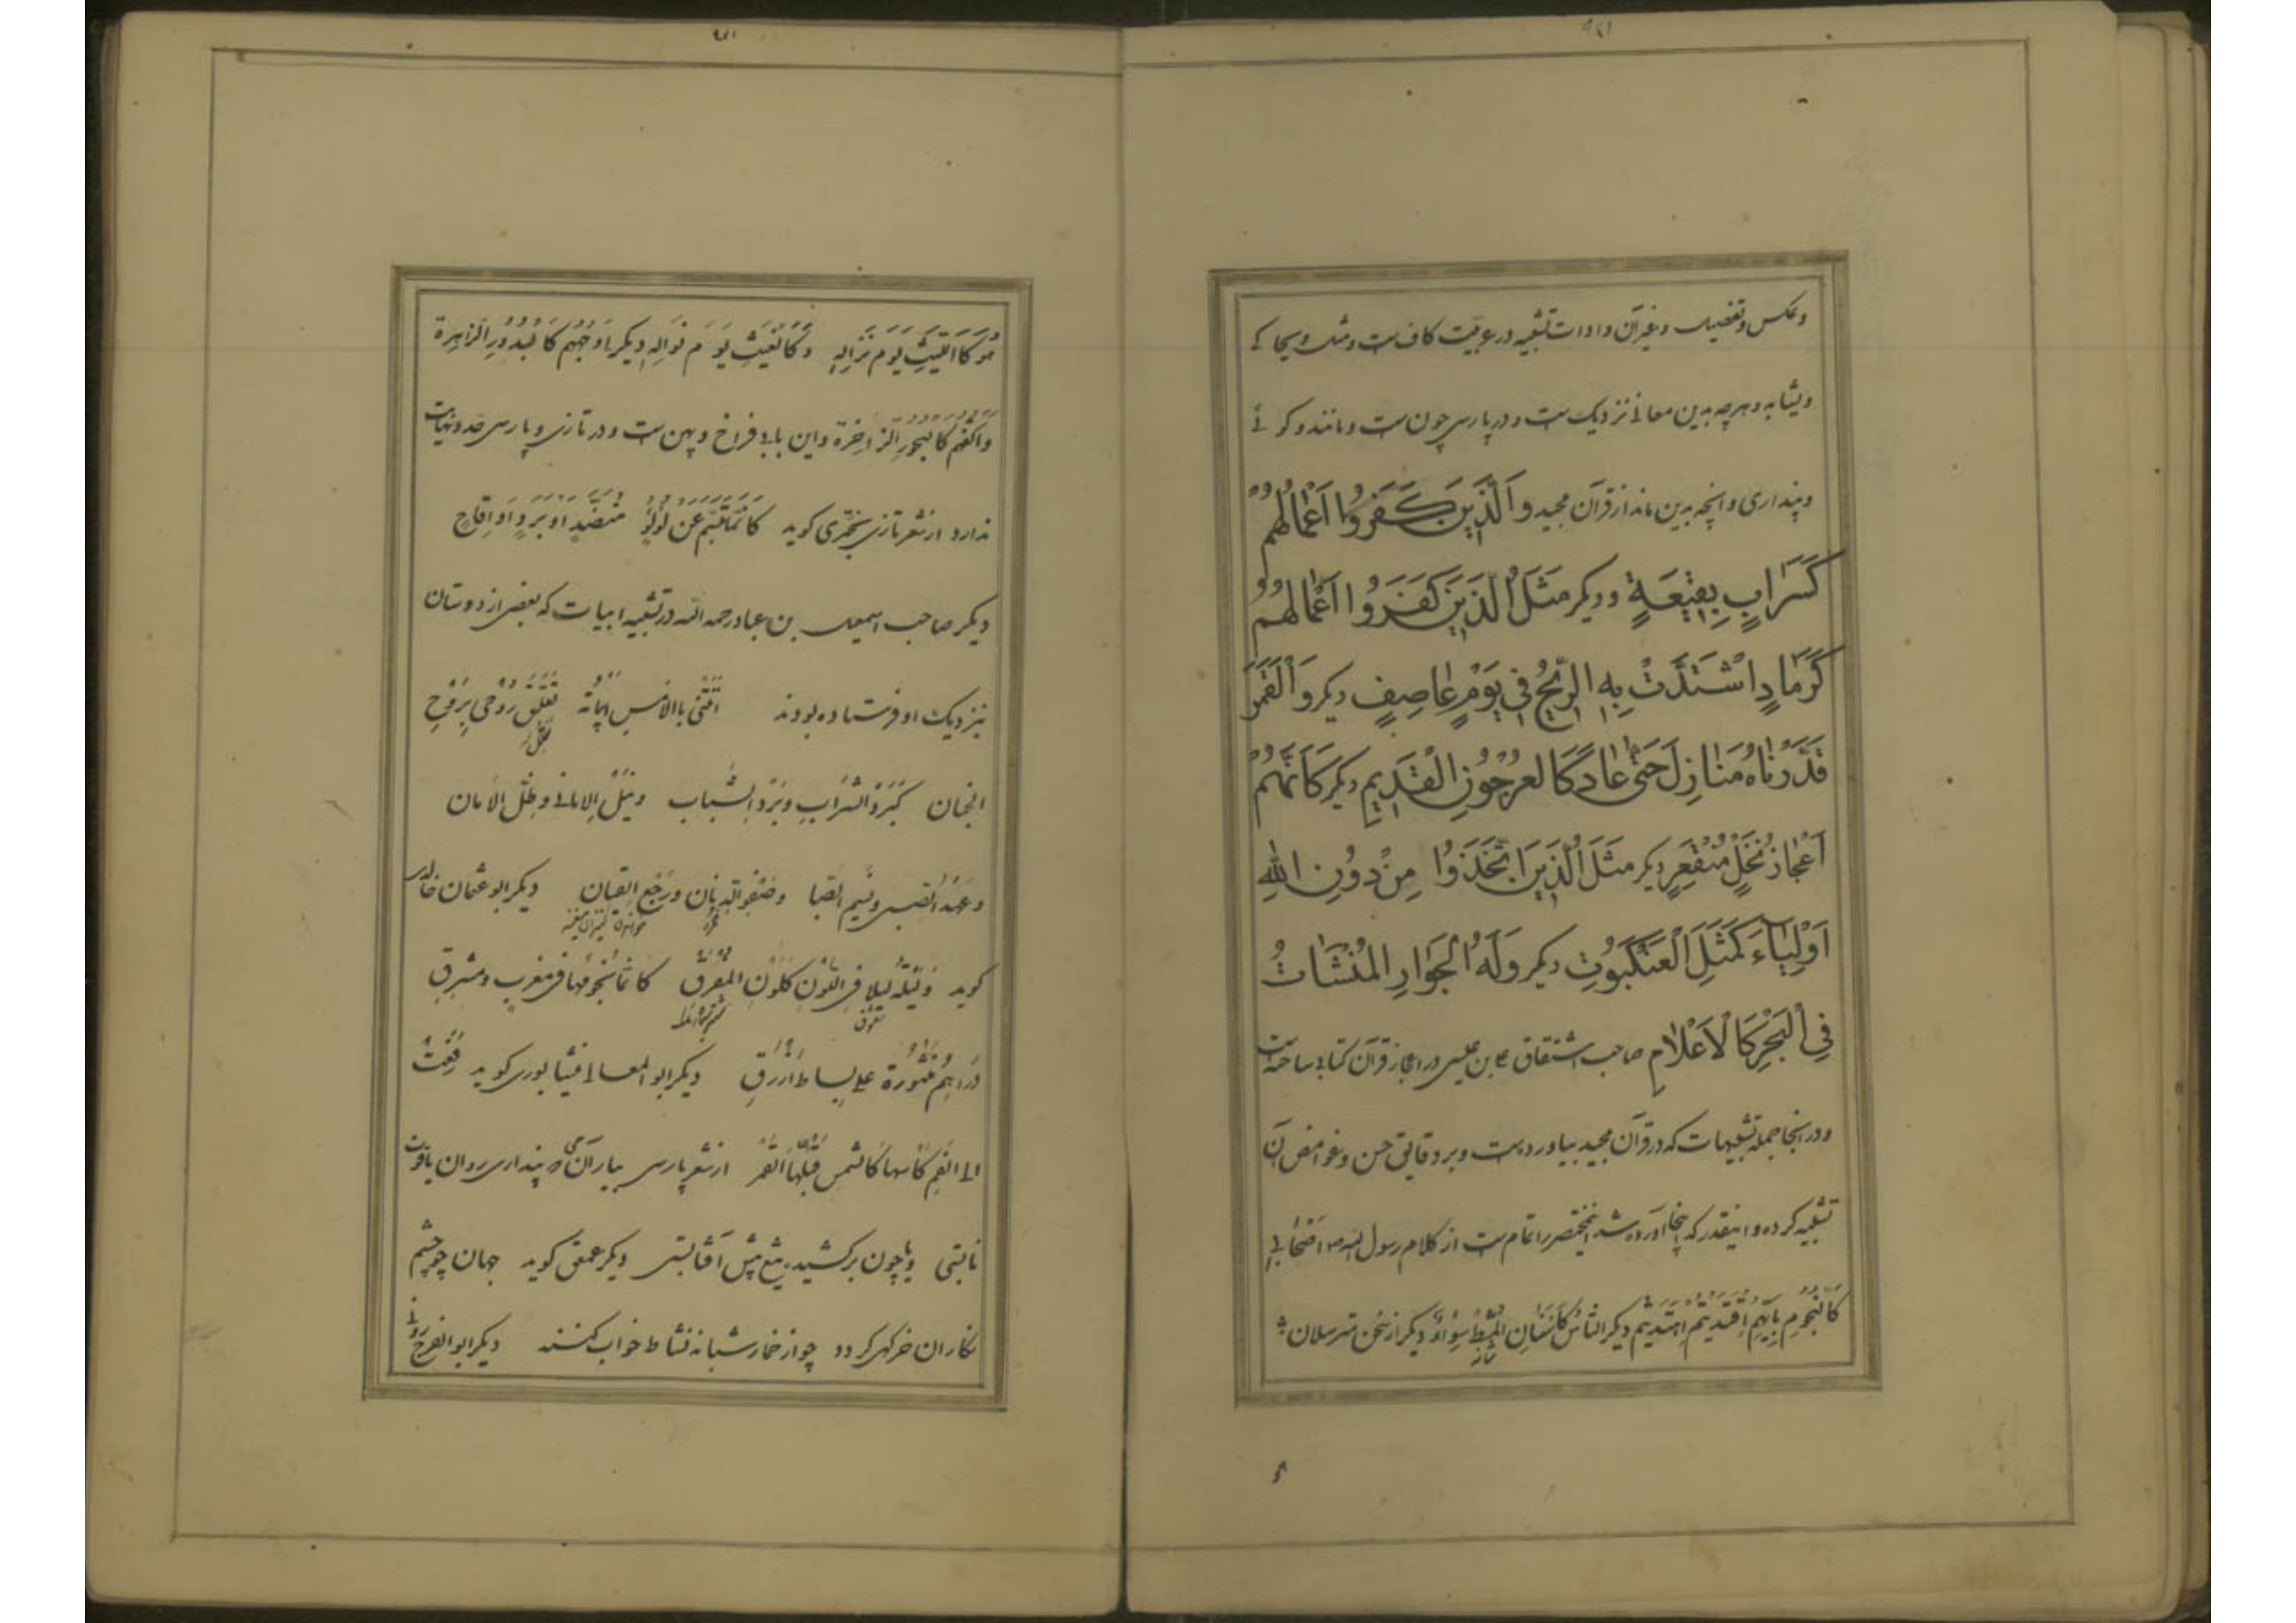 وعکس وتفضیل وغیر آن وادات تشبیه در عربیت کاف ست ومثل ویحاکی
ویشابه وهرچه بدین معانی نزدیک ست ودر پارسی چون ست ومانند وگوئی
وپنداری وانچه بدین ماند از قرآن مجید وَالَّذِینَ کَفَرُوا اَعْمَالُهُمْ
کَسَرَابٍ بِقِیعَةٍ ودیکر مَثَلُ الَّذِینَ کَفَرُوا اَعْمَالُهُمْ
کَرَمَادٍ اشْتَدَّتْ بِهِ الرِّیحُ فِی یَوْمٍ عَاصِفٍ دیکر وَالْقَمَرَ
قَدَّرْنَاهُ مَنَازِلَ حَتّٰی عَادَ کَالْعُرْجُونِ الْقَدِیمِ دیکر کَاَنَّهُمْ
اَعْجَازُ نَخْلٍ مُنْقَعِرٍ دیکر مَثَلُ الَّذِینَ اتَّخَذُوا مِنْ دُونِ اللهِ
اَوْلِیَاءَ کَمَثَلِ الْعَنْکَبُوتِ دیکر وَلَهُ الْجَوَارِ الْمُنْشَاتُ
فِی الْبَحْرِ کَالْاَعْلَامِ صاحب اشتقاق علی بن عیسی در اعجاز قرآن کتابی ساخته است
ودر انجا جمله تشبیهات که در قرآن مجید بیاورده ست وبر دقایق حسن وغوامض آن
تشبیه کرده واینقدر که اینجا آورده شد اینمختصر را تمام ست از کلام رسول الله ص اَصْحَابِی
کَالنُّجُومِ بِاَیِّهِمُ اقْتَدَیْتُمُ اهْتَدَیْتُمْ دیکر النَّاسُ کَاَسْنَانِ الْمُشْطِ سَوَاءٌ دیکر از سخن مترسلان
شانه
هُوَ کَاللَّیْثِ یَوْمَ نِزَالِهِ وَکَالْغَیْثِ یَوْمَ نَوَالِهِ دیکر اَوْجُهُهُمْ کَالْبُدُورِ الزَّاهِرَةِ
وَاَکُفُّهُمْ کَالْبُحُورِ الزَّاخِرَةِ واین بابی فراخ وپهن ست ودر تازی وپارسی حد ونهایت
ندارد از شعر تازی بحتری کوید کَاَنَّمَا تَبَسَّمَ عَنْ لُؤْلُؤٍ مُنَضَّدٍ اَوْ بَرَدٍ اَوْ اَقَاحِ
دیکر صاحب اسمعیل بن عباد رحمه الله در تشبیه ابیات که بعضی از دوستان
بنزدیک او فرستاده بودند اَتَتْنِی بِالْاَمْسِ اَبْیَاتُهُ تُعَلِّقُ رُوحِی بِرَوْحِ
الجنان کَبَرْدِ الشَّرَابِ وَبَرْدِ الشَّبَابِ وَنَیْلِ الْاَمَانِی وَظِلِّ الْاَمَانِ
وَعَهْدِ الصِّبَی وَنَسِیمِ الصَّبَا وَصَفْوِ الدِّنَانِ وَرَجْعِ الْقِیَانِ دیکر ابو عثمان خالدی
کوید وَلَیْلَةٍ لَیْلَاءَ فِی اللَّوْنِ کَلَوْنِ الْمَفْرِقِ کَاَنَّمَا نُجُومُهَا فِی مَغْرِبٍ وَمَشْرِقِ
دَرَاهِمُ مَنْثُورَةٌ عَلَی بِسَاطٍ اَزْرَقِ دیکر ابو المعالی نیشابوری کوید رُفِعَتْ
اِلَی الْفَمِ کَاْسُهَا کَالشَّمْسِ قَبَّلَهَا الْقَمَرُ از شعر پارسی بیار آن می که پنداری روان یاقوت
نابستی ویا چون برکشیده تیغ پیش آفتابستی دیکر عمعق کوید جهان چو چشم
نکاران خرکهی کردد چو از خمار شبانه نشاط خواب کنند دیکر ابو الفرج رونی